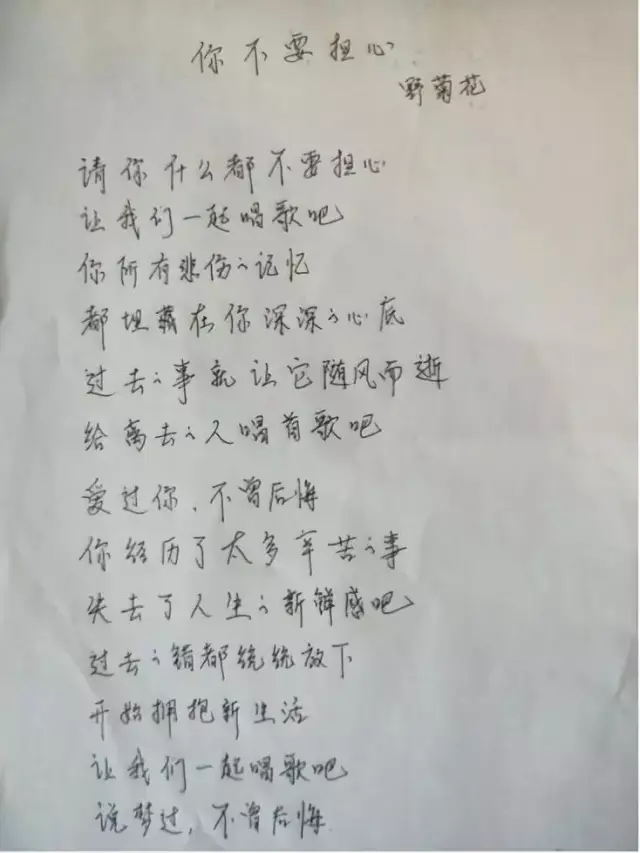 你不要担心
野菊花
请你什么都不要担心
让我们一起唱歌吧
你所有悲伤的记忆
都埋藏在你深深的心底
过去的事就让它随风而逝
给离去的人唱首歌吧
爱过你、不曾后悔
你经历了太多辛苦的事
失去了人生的新鲜感吧
过去的错都统统放下
开始拥抱新生活
让我们一起唱歌吧
说梦过，不曾后悔